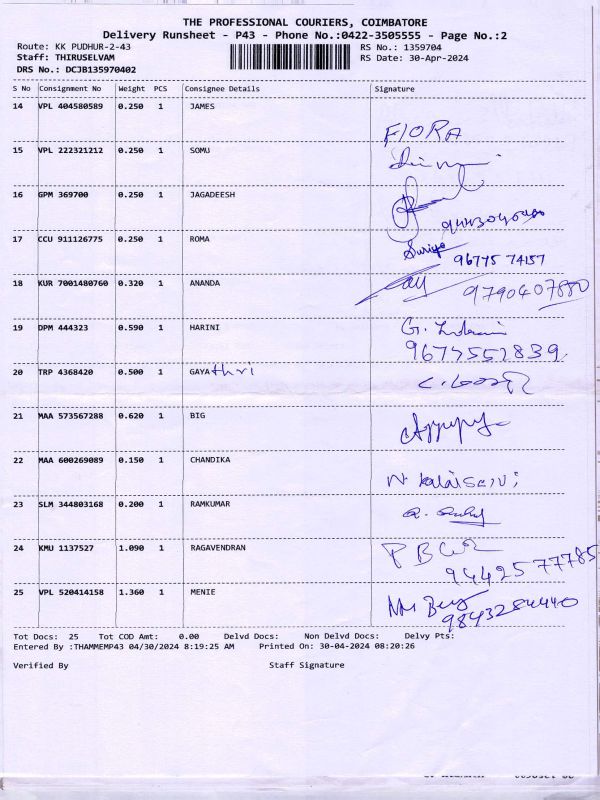 THE PROFESSIONAL COURIERS, COIMBATORE
Delivery Runsheet - P43 - Phone No.:0422-3505555 - Page No.:2
Route: KK PUDHUR-2-43 RS No.: 1359704
Staff: THIRUSELVAM RS Date: 30-Apr-2024
DRS No.: DCJB135970402
S No Consignment No Weight PCS Consignee Details Signature
14 VPL 404580589 0.250 1 JAMES
FIORA
15 VPL 222321212 0.250 1 SOMU
16 GPM 369700 0.250 1 JAGADEESH
17 CCU 911126775 0.250 1 ROMA
Suriya 96775 74157
18 KUR 7001480760 0.320 1 ANANDA
9790407880
19 DPM 444323 0.590 1 HARINI
G.
9677552839
20 TRP 4368420 0.500 1 GAYAthri
21 MAA 573567288 0.620 1 BIG
22 MAA 600269089 0.150 1 CHANDIKA
N. Kalaiselvi
23 SLM 344803168 0.200 1 RAMKUMAR
24 KMU 1137527 1.090 1 RAGAVENDRAN
9442577785
25 VPL 520414158 1.360 1 MENIE
9843284440
Tot Docs: 25 Tot COD Amt: 0.00 Delvd Docs: Non Delvd Docs: Delvy Pts:
Entered By :THAMMEMP43 04/30/2024 8:19:25 AM Printed On: 30-04-2024 08:20:26
Verified By Staff Signature